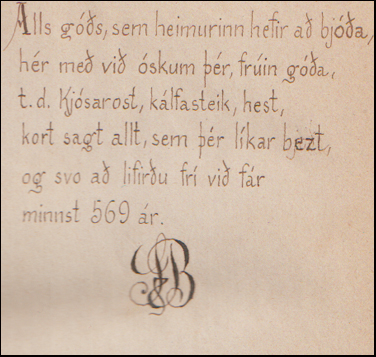 Alls góðs, sem heimurinn hefir að bjóða,
hér með við óskum þér, frúin góða,
t.d. Kjósarost, kálfasteik, hest,
kort sagt allt, sem þér líkar bezt,
og svo að lifirðu frí við fár
minnst 569 ár.